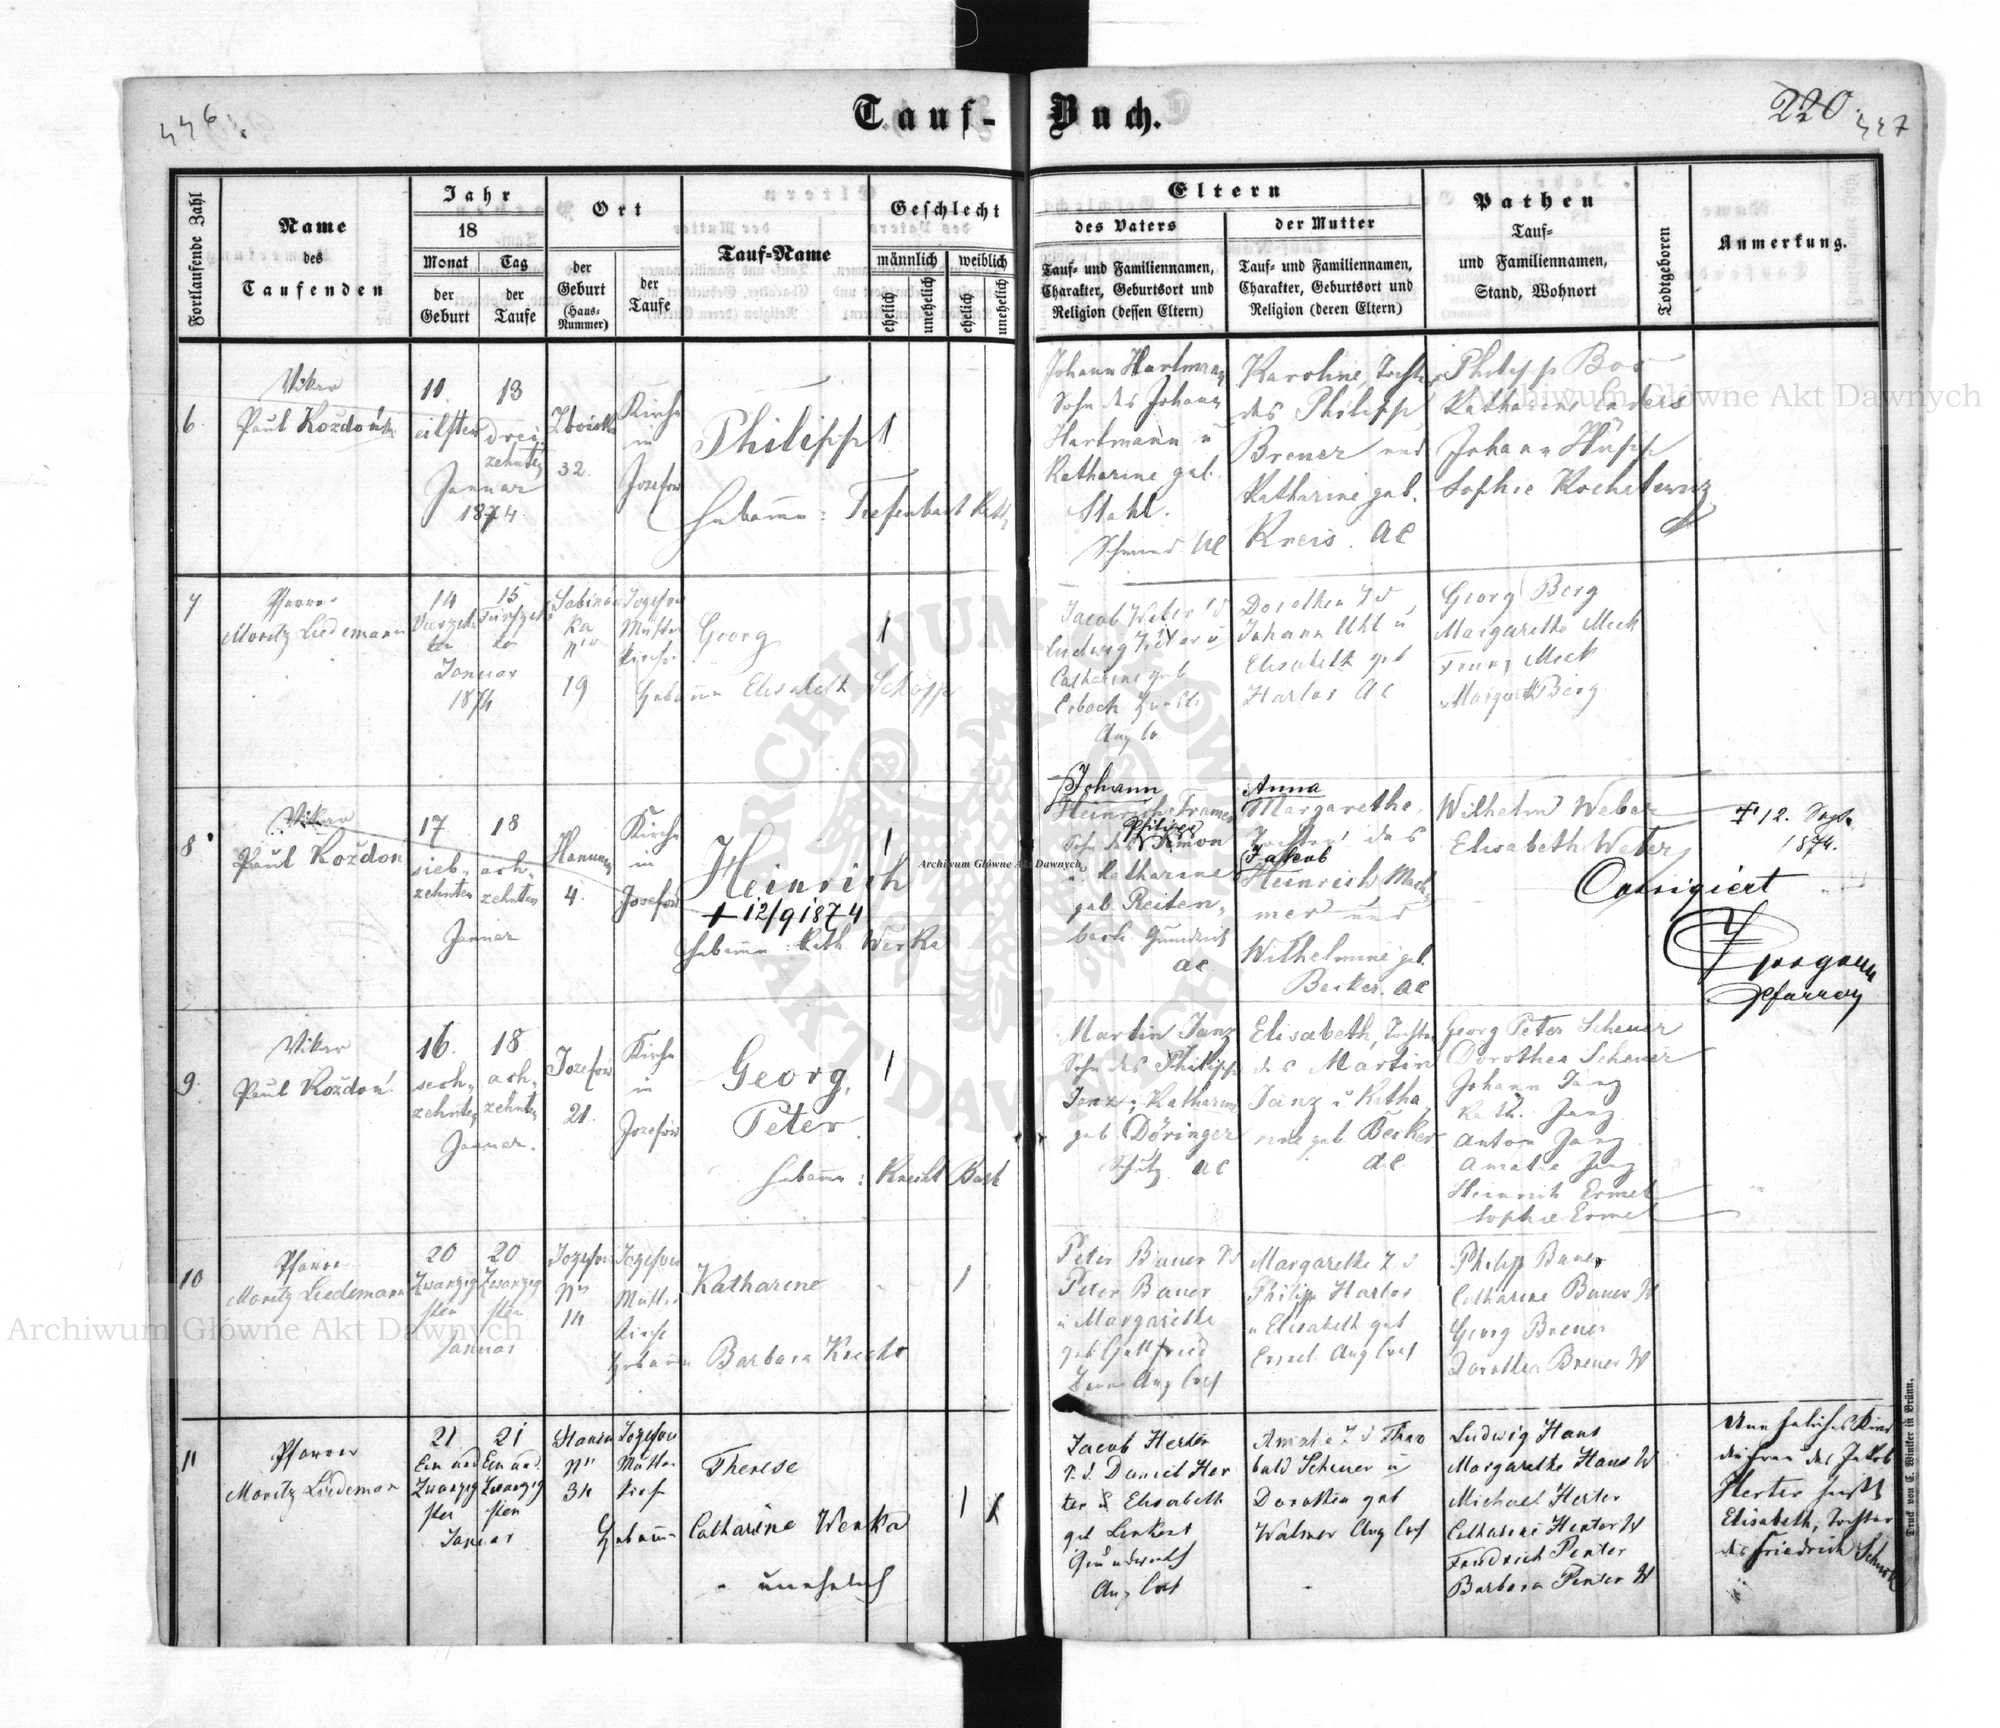 446.
Tauf-Buch.
220.
447
Fortlaufende Zahl
Name
des
Taufenden
Jahr
18
Monat
Tag
der
Geburt
der
Taufe
Ort
der
Geburt
(Haus-
Nummer)
der
Taufe
Tauf-Name
Geschlecht
männlich
weiblich
ehelich
unehelich
ehelich
unehelich
Eltern
des Vaters
Tauf- und Familiennamen,
Charakter, Geburtsort und
Religion (dessen Eltern)
der Mutter
Tauf- und Familiennamen,
Charakter, Geburtsort und
Religion (deren Eltern)
Pathen
Tauf-
und Familiennamen,
Stand, Wohnort
Todtgeboren
Anmerkung.
6.
Vikar
Paul Koždoń
11.
eilften
13
drei
zehnten
Januar
1874.
32.
Kirche
in
Josefow
Philipp
1
Hebamme: Tiefenbach Kath.
Johann Hartmann
Sohn des Johann
Hartmann u
Katharine geb.
Stahl.
AC
Karoline, Tochter
des Philipp
Breuer und
Katharine geb.
Kreis. AC
Philipp Bos
Katharine
Johann Hüpp
Sophie
7
Pfarrer
Moritz Liedemann
14
Vierzehn
ten
15
Fünfzehn
ten
Januar
1874
Sabinow
ka
Nro
19
Jozefow
Mutter
Kirche
Georg
1
Hebamme Elisabeth Schöpp
Jacob Weber
Ludwig
Catharine geb
Dorothea T d
Johann Uhl u
Elisabeth geb
Harlos AC
Georg Berg
Margarethe Meck
Franz Meck
Margareth Berg
8.
Vikar
Paul Koždoń
17
sieb-
zehnten
18
ach-
zehnten
Januar
Hanunin
4.
Kirche
in
Josefow
Heinrich
+ 12/9 1874
Hebamme: Kath. Werka
1
Johann
Heinrich
Sohn des Simon
u Katharine
geb. Reiten-
bach
AC
Anna
Margaretha,
Tochter des
Jakob
Heinrich
mer und
Wilhelmine geb.
Becker. AC
Wilhelm Weber
Elisabeth Weber
+ 12. Sept.
1874.
Corrigiert
Pfarrer
9.
Vikar
Paul Koždoń
16.
sech-
zehnten
18
ach-
zehnten
Januar.
Jozefow
21.
Kirche
in
Josefow
Georg,
Peter.
1
Hebamme: Knecht Barb
Martin Janz
Sohn des Philipp
Janz u Katharine
geb. Döringer
AC
Elisabeth, Tochter
des Martin
Janz u Katha
rine geb. Becker
AC
Georg Peter Scheuer
Dorothea Scheuer
Johann Janz
Kath. Janz
Anton Janz
Amalie Janz
Heinrich Ermel
Sophie Ermel
10
Pfarrer
Moritz Liedemann
20
Zwanzig
sten
20
Zwanzig
sten
Januar
Jozefow
Nro
14
Jozefow
Mutter
Kirche
Katharine
1
Hebamme Barbara Knecht
Peter Bauer
Peter Bauer
u Margarethe
geb Gottfried
Margarethe T d
Philipp Harlos
u Elisabeth geb
Ermel Aug Conf
Philipp Bauer
Catharine Bauer W
Georg Breuer
Dorothea Breuer W
11
Pfarrer
Moritz Liedeman
21
Ein und
Zwanzig
sten
21
Ein und
Zwanzig
sten
Januar
Stanin
Nro
34
Jozefow
Mutter
Kirche
Therese
1
Hebamme Catharine Werka
unehelich
Jacob Herter
S. d. Daniel Her
ter u Elisabeth
geb Lenkert
Grundwirth
Aug Conf
Amalie T d Theo
bald Scheuer u
Dorothea geb
Walmer Aug Conf
Ludwig Haus
Margarethe Haus W
Michael Herter
Catharine Herter W
Friedrich Penter
Barbara Penter W
Unehelisches Kind
die Frau des Jakob
Herter heißt
Elisabeth, Tochter
des Friedrich
Druck von C. Winiker in Brünn.
Archiwum Główne Akt Dawnych
Archiwum Główne Akt Dawnych
Archiwum Główne Akt Dawnych
ARCHIWUM GŁÓWNE AKT DAWNYCH